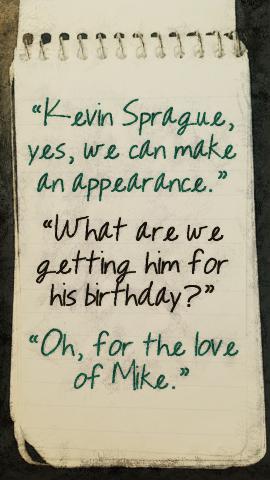 “Kevin Sprague,
yes, we can make
an appearance.”
“What are we
getting him for
his birthday?”
“Oh, for the love
of Mike.”